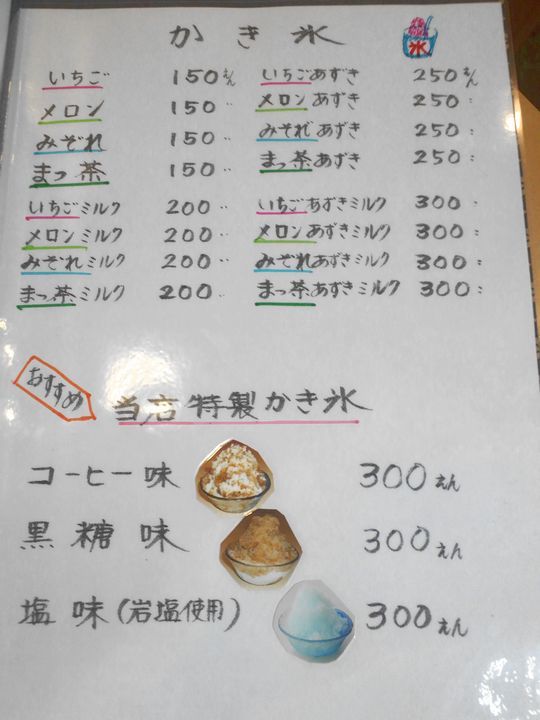 かき氷
氷
いちご 150えん いちごあずき 250えん
メロン 150〃 メロンあずき 250〃
みぞれ 150〃 みぞれあずき 250〃
まっ茶 150〃 まっ茶あずき 250〃
いちごミルク 200〃 いちごあずきミルク 300〃
メロンミルク 200〃 メロンあずきミルク 300〃
みぞれミルク 200〃 みぞれあずきミルク 300〃
まっ茶ミルク 200〃 まっ茶あずきミルク 300〃
おすすめ
当店特製かき氷
コーヒー味 300えん
黒糖味 300えん
塩味(岩塩使用) 300えん